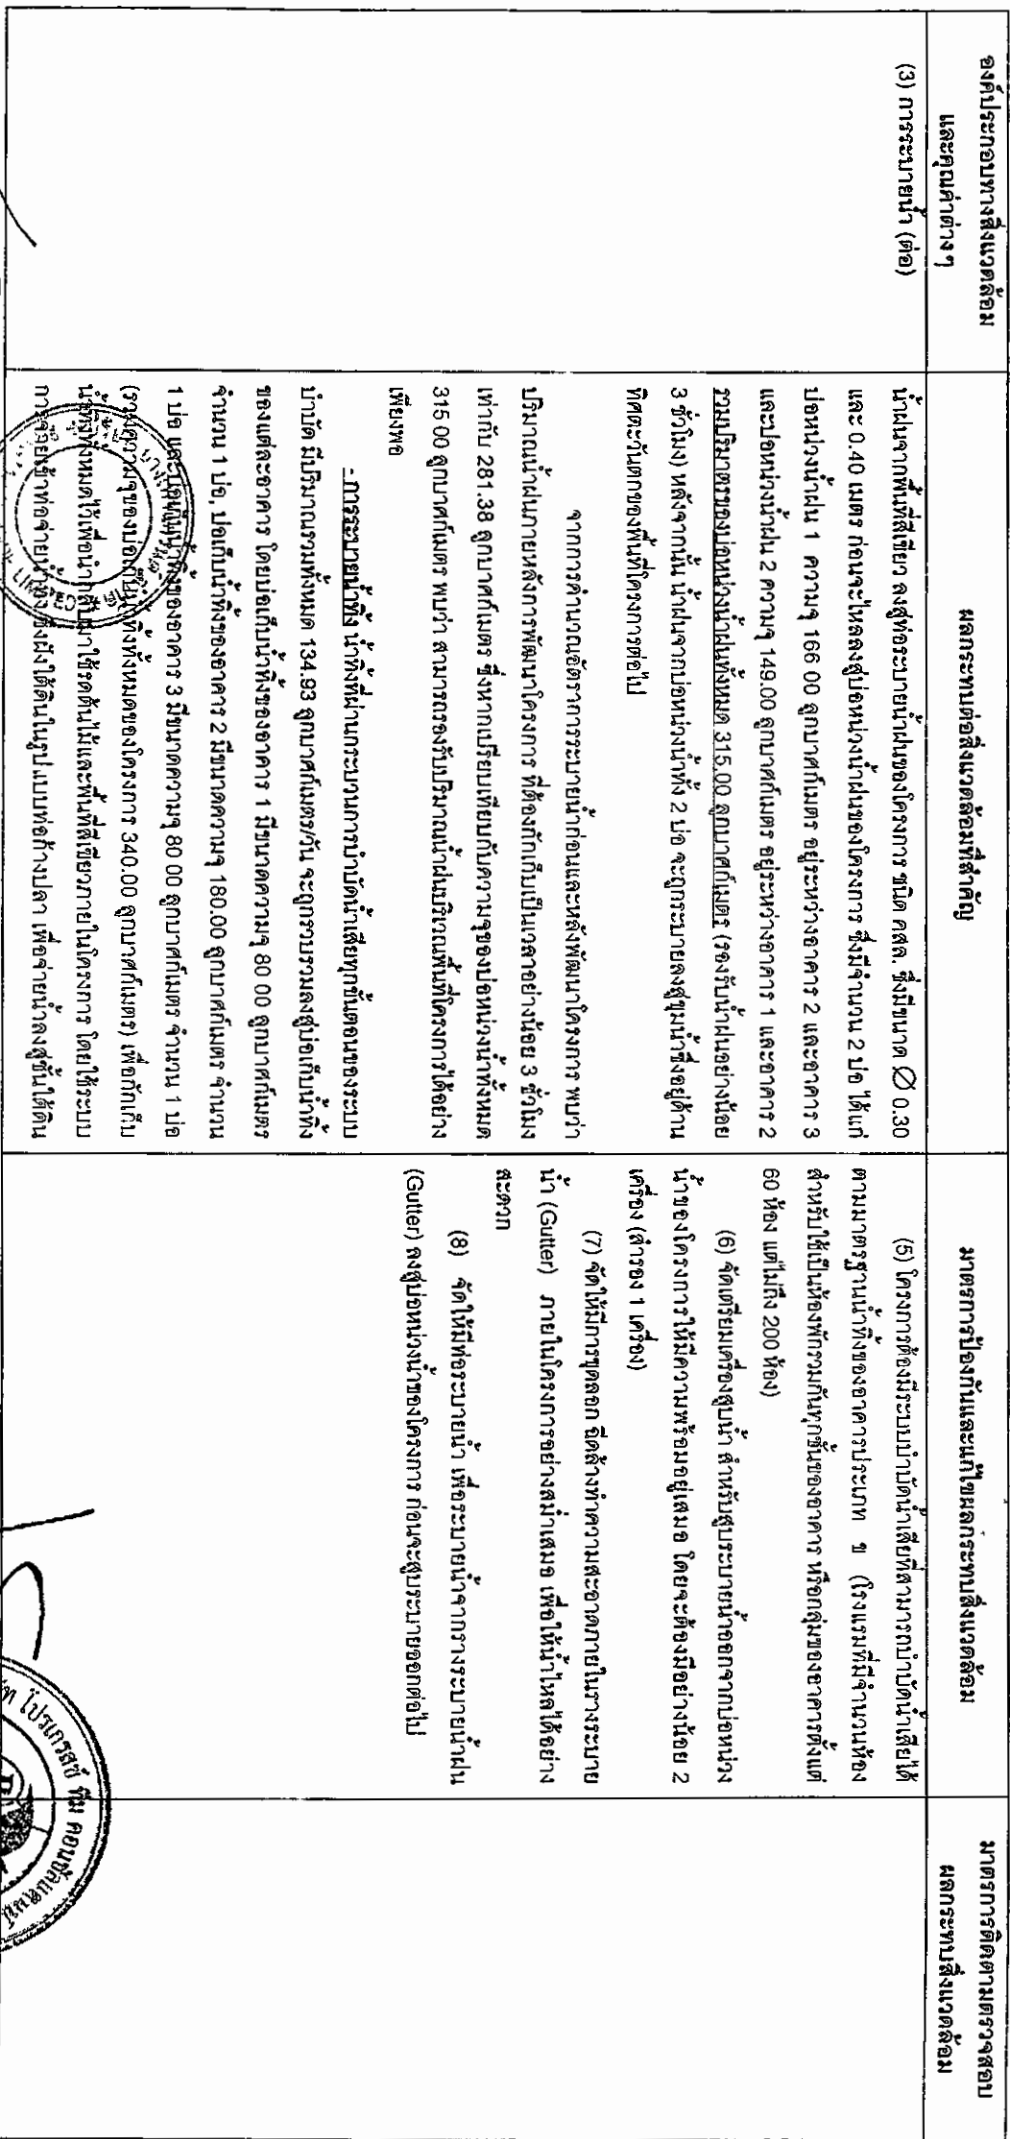 องค์ประกอบทางสิ่งแวดล้อม
และคุณค่าต่างๆ
ผลกระทบต่อสิ่งแวดล้อมที่สำคัญ
มาตรการป้องกันและแก้ไขผลกระทบสิ่งแวดล้อม
มาตรการติดตามตรวจสอบ
ผลกระทบสิ่งแวดล้อม
(3) การระบายน้ำ (ต่อ)
น้ำฝนจากพื้นที่สีเขียว ลงสู่ท่อระบายน้ำฝนของโครงการ ชนิด คสล. ซึ่งมีขนาด ∅ 0.30
และ 0.40 เมตร ก่อนจะไหลลงสู่บ่อหน่วงน้ำฝนของโครงการ ซึ่งมีจำนวน 2 บ่อ ได้แก่
บ่อหน่วงน้ำฝน 1 ความจุ 166 00 ลูกบาศก์เมตร อยู่ระหว่างอาคาร 2 และอาคาร 3
และบ่อหน่วงน้ำฝน 2 ความจุ 149.00 ลูกบาศก์เมตร อยู่ระหว่างอาคาร 1 และอาคาร 2
รวมปริมาตรของบ่อหน่วงน้ำฝนทั้งหมด 315.00 ลูกบาศก์เมตร (รองรับน้ำฝนอย่างน้อย
3 ชั่วโมง) หลังจากนั้น น้ำฝนจากบ่อหน่วงน้ำทั้ง 2 บ่อ จะถูกระบายลงสู่ขุมน้ำซึ่งอยู่ด้าน
ทิศตะวันตกของพื้นที่โครงการต่อไป
จากการคำนวณอัตราการระบายน้ำก่อนและหลังพัฒนาโครงการ พบว่า
ปริมาณน้ำฝนภายหลังการพัฒนาโครงการ ที่ต้องกักเก็บเป็นเวลาอย่างน้อย 3 ชั่วโมง
เท่ากับ 281.38 ลูกบาศก์เมตร ซึ่งหากเปรียบเทียบกับความจุของบ่อหน่วงน้ำทั้งหมด
315 00 ลูกบาศก์เมตร พบว่า สามารถรองรับปริมาณน้ำฝนบริเวณพื้นที่โครงการได้อย่าง
เพียงพอ
- การระบายน้ำทิ้ง น้ำทิ้งที่ผ่านกระบวนการบำบัดน้ำเสียทุกขั้นตอนของระบบ
บำบัด มีปริมาณรวมทั้งหมด 134.93 ลูกบาศก์เมตร/วัน จะถูกรวบรวมลงสู่บ่อเก็บน้ำทิ้ง
ของแต่ละอาคาร โดยบ่อเก็บน้ำทิ้งของอาคาร 1 มีขนาดความจุ 80 00 ลูกบาศก์เมตร
จำนวน 1 บ่อ, บ่อเก็บน้ำทิ้งของอาคาร 2 มีขนาดความจุ 180.00 ลูกบาศก์เมตร จำนวน
1 บ่อ และบ่อเก็บน้ำทิ้งของอาคาร 3 มีขนาดความจุ 80 00 ลูกบาศก์เมตร จำนวน 1 บ่อ
(รวมความจุของบ่อเก็บน้ำทิ้งทั้งหมดของโครงการ 340.00 ลูกบาศก์เมตร) เพื่อกักเก็บ
น้ำทิ้งทั้งหมดไว้เพื่อนำกลับมาใช้รดต้นไม้และพื้นที่สีเขียวภายในโครงการ โดยใช้ระบบ
การจ่ายเข้าท่อจ่ายน้ำ ซึ่งฝังใต้ดินในรูปแบบท่อก้างปลา เพื่อจ่ายน้ำลงสู่ชั้นใต้ดิน
(5) โครงการต้องมีระบบบำบัดน้ำเสียที่สามารถบำบัดน้ำเสียได้
ตามมาตรฐานน้ำทิ้งของอาคารประเภท ข (โรงแรมที่มีจำนวนห้อง
สำหรับใช้เป็นห้องพักรวมกันทุกชั้นของอาคาร หรือกลุ่มของอาคารตั้งแต่
60 ห้อง แต่ไม่ถึง 200 ห้อง)
(6) จัดเตรียมเครื่องสูบน้ำ สำหรับสูบระบายน้ำออกจากบ่อหน่วง
น้ำของโครงการให้มีความพร้อมอยู่เสมอ โดยจะต้องมีอย่างน้อย 2
เครื่อง (สำรอง 1 เครื่อง)
(7) จัดให้มีการขุดลอก ฉีดล้างทำความสะอาดภายในรางระบาย
น้ำ (Gutter) ภายในโครงการอย่างสม่ำเสมอ เพื่อให้น้ำไหลได้อย่าง
สะดวก
(8) จัดให้มีท่อระบายน้ำ เพื่อระบายน้ำจากรางระบายน้ำฝน
(Gutter) ลงสู่บ่อหน่วงน้ำของโครงการ ก่อนจะสูบระบายออกต่อไป
โปรเกรสซ์ ทีม คอนซัลแตนท์